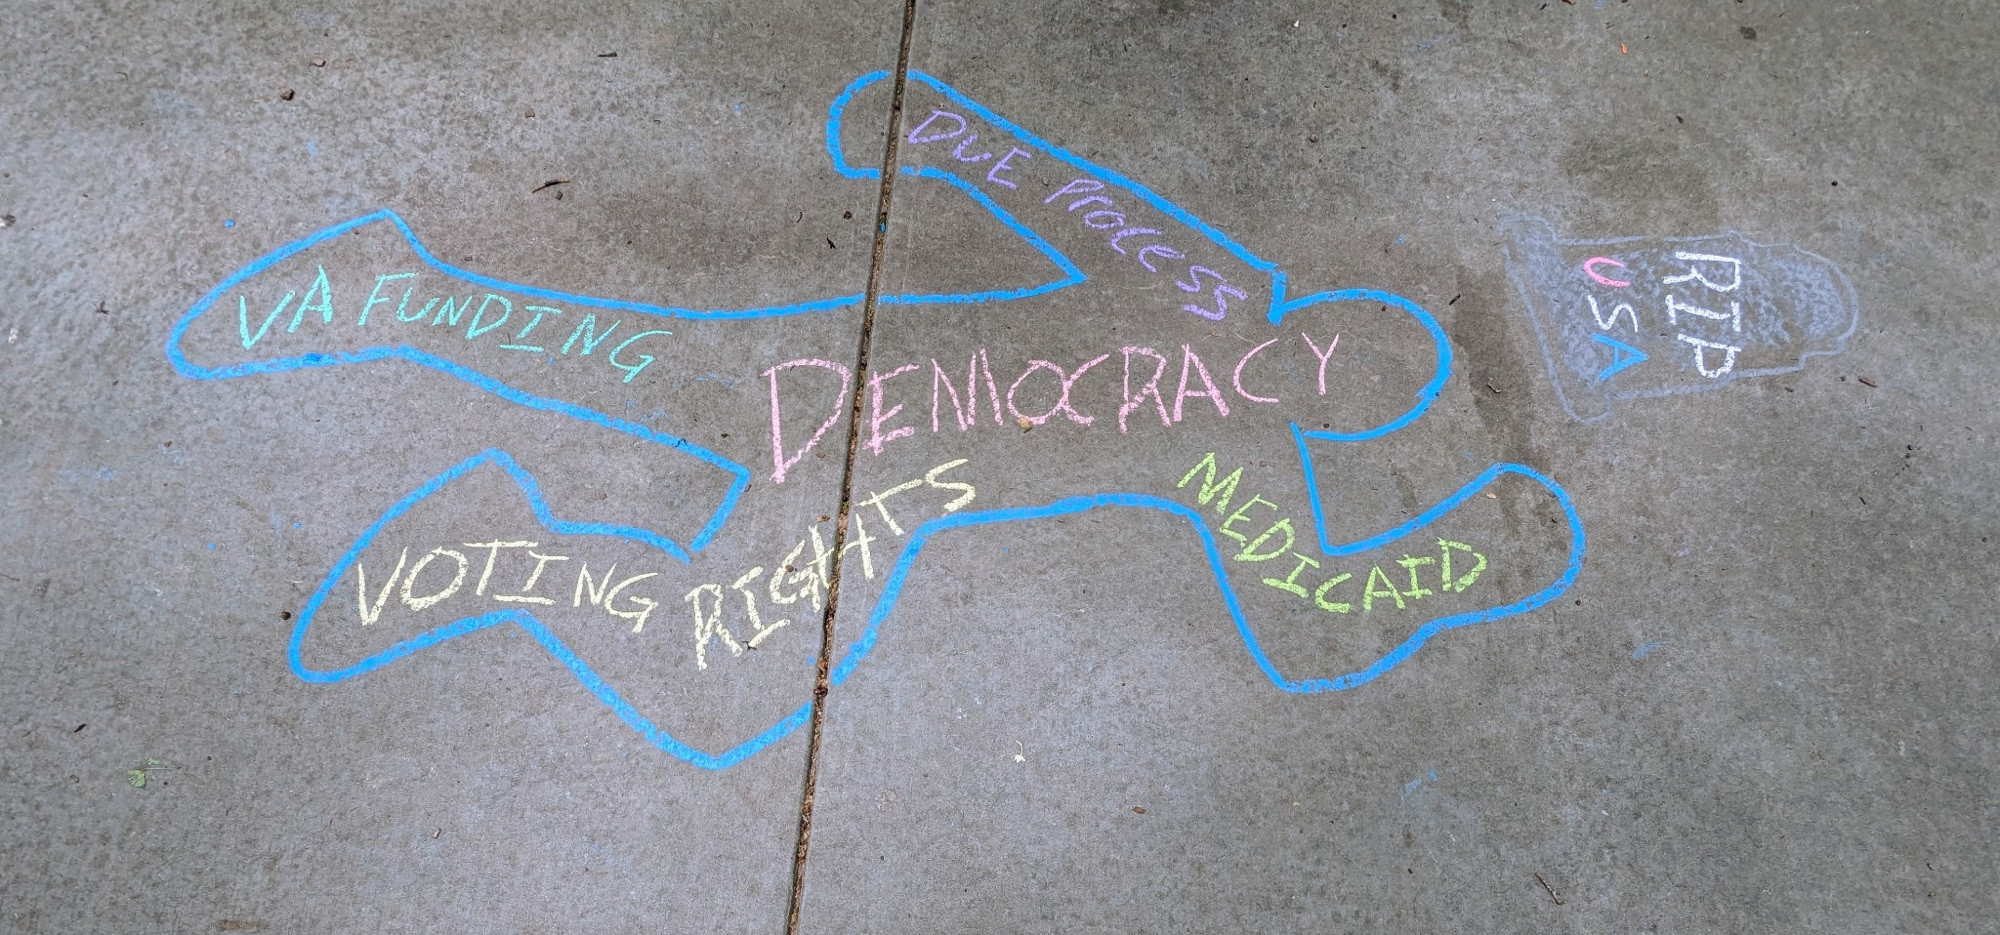 DUE PROCESS
VA FUNDING
DEMOCRACY
VOTING RIGHTS
MEDICAID
RIP
USA